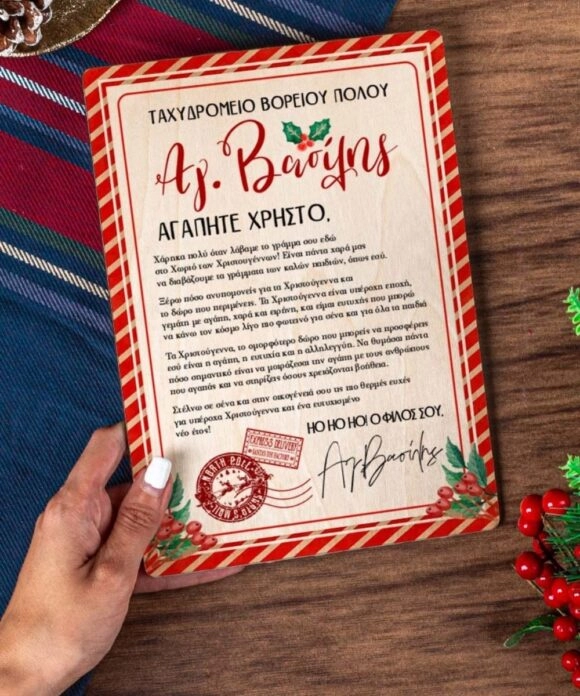 ΤΑΧΥΔΡΟΜΕΙΟ ΒΟΡΕΙΟΥ ΠΟΛΟΥ
Αγ. Βασίλης
ΑΓΑΠΗΤΕ ΧΡΗΣΤΟ,
Χάρηκα πολύ όταν λάβαμε το γράμμα σου εδώ
στο Χωριό των Χριστουγέννων! Είναι πάντα χαρά μας
να διαβάζουμε τα γράμματα των καλών παιδιών, όπως εσύ.
Ξέρω πόσο ανυπομονείς για τα Χριστούγεννα και
το δώρο που περιμένεις. Τα Χριστούγεννα είναι υπέροχη εποχή,
γεμάτη με αγάπη, χαρά και ειρήνη, και είμαι ευτυχής που μπορώ
να κάνω τον κόσμο λίγο πιο φωτεινό για σένα και για όλα τα παιδιά
Τα Χριστούγεννα, το ομορφότερο δώρο που μπορείς να προσφέρεις
εσύ είναι η αγάπη, η ευτυχία και η αλληλεγγύη. Να θυμάσαι πάντα
πόσο σημαντικό είναι να μοιράζεσαι την αγάπη με τους ανθρώπους
που αγαπάς και να στηρίζεις όσους χρειάζονται βοήθεια.
Στέλνω σε σένα και στην οικογένειά σου τις πιο θερμές ευχές
για υπέροχα Χριστούγεννα και ένα ευτυχισμένο
νέο έτος!
HO HO HO! Ο ΦΙΛΟΣ ΣΟΥ,
Αγ.Βασίλης
EXPRESS DELIVERY
SANTA'S TOY FACTORY
NORTH POLE
SANTA'S MAIL